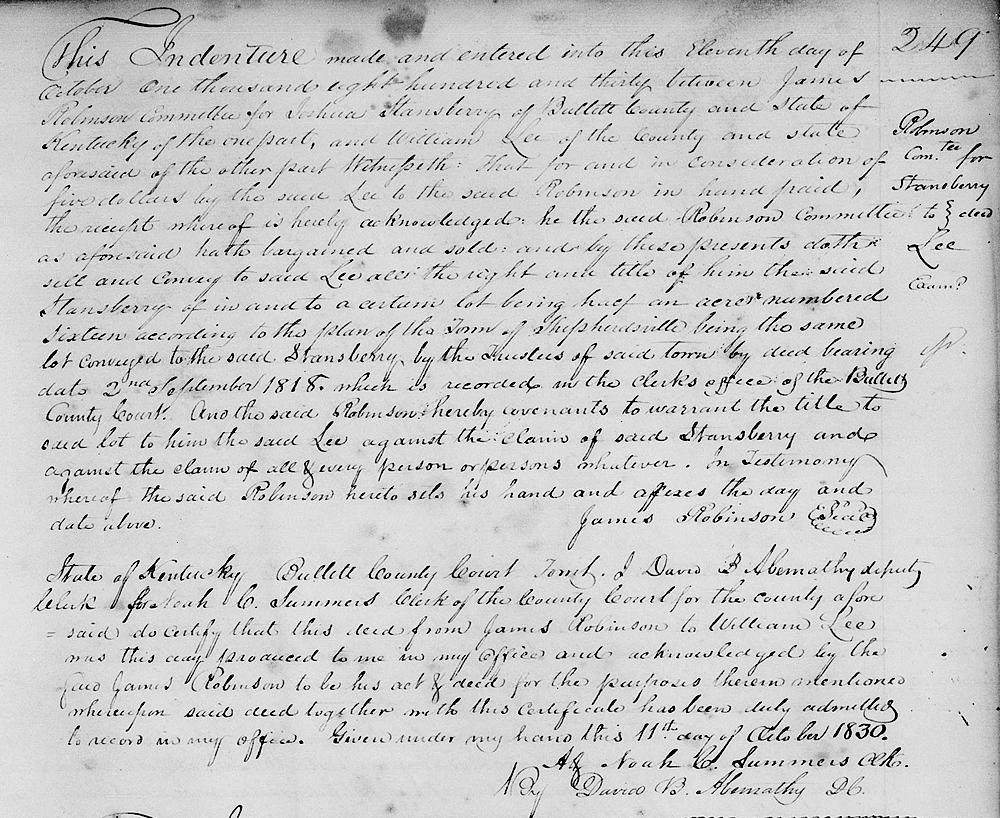 249
This Indenture made and entered into this Eleventh day of
October One thousand eight hundred and thirty between James
Robinson Committee for Joshua Stansberry of Bullett County and State of
Kentucky of the one part, and William Lee of the County and state
aforesaid of the other part Witnesseth: That for and in consideration of
five dollars by the said Lee to the said Robinson in hand paid,
the receipt whereof is hereby acknowledged: he the said Robinson Committee
as aforesaid hath bargained and sold: and by these presents doth
sell and Convey to said Lee all the right and title of him the said
Stansberry of in and to a certain lot being half an acre numbered
Sixteen according to the plan of the Town of Shepherdsville being the same
lot conveyed to the said Stansberry by the Trustees of said town by deed bearing
date 2nd September 1818. which is recorded in the Clerks office of the Bullett
County Court. And the said Robinson hereby covenants to warrant the title to
said lot to him the said Lee against the claim of said Stansberry and
against the claim of all & every person or persons whatever. In Testimony
whereof the said Robinson hereto sets his hand and affixes the day and
date above.
James Robinson Seal
Robinson
Comtee for
Stansberry
to } deed
Lee
Examd
State of Kentucky Bullett County Court Towit. I David B Abernathy deputy
Clerk for Noah C. Summers Clerk of the County Court for the county afore
= said do certify that this deed from James Robinson to William Lee
was this day produced to me in my office and acknowledged by the
said James Robinson to be his act & deed for the purposes therein mentioned
whereupon said deed together with this certificate has been duly admitted
to record in my office. Given under my hand this 11th day of October 1830.
Noah C. Summers Clk.
By David B. Abernathy DC.